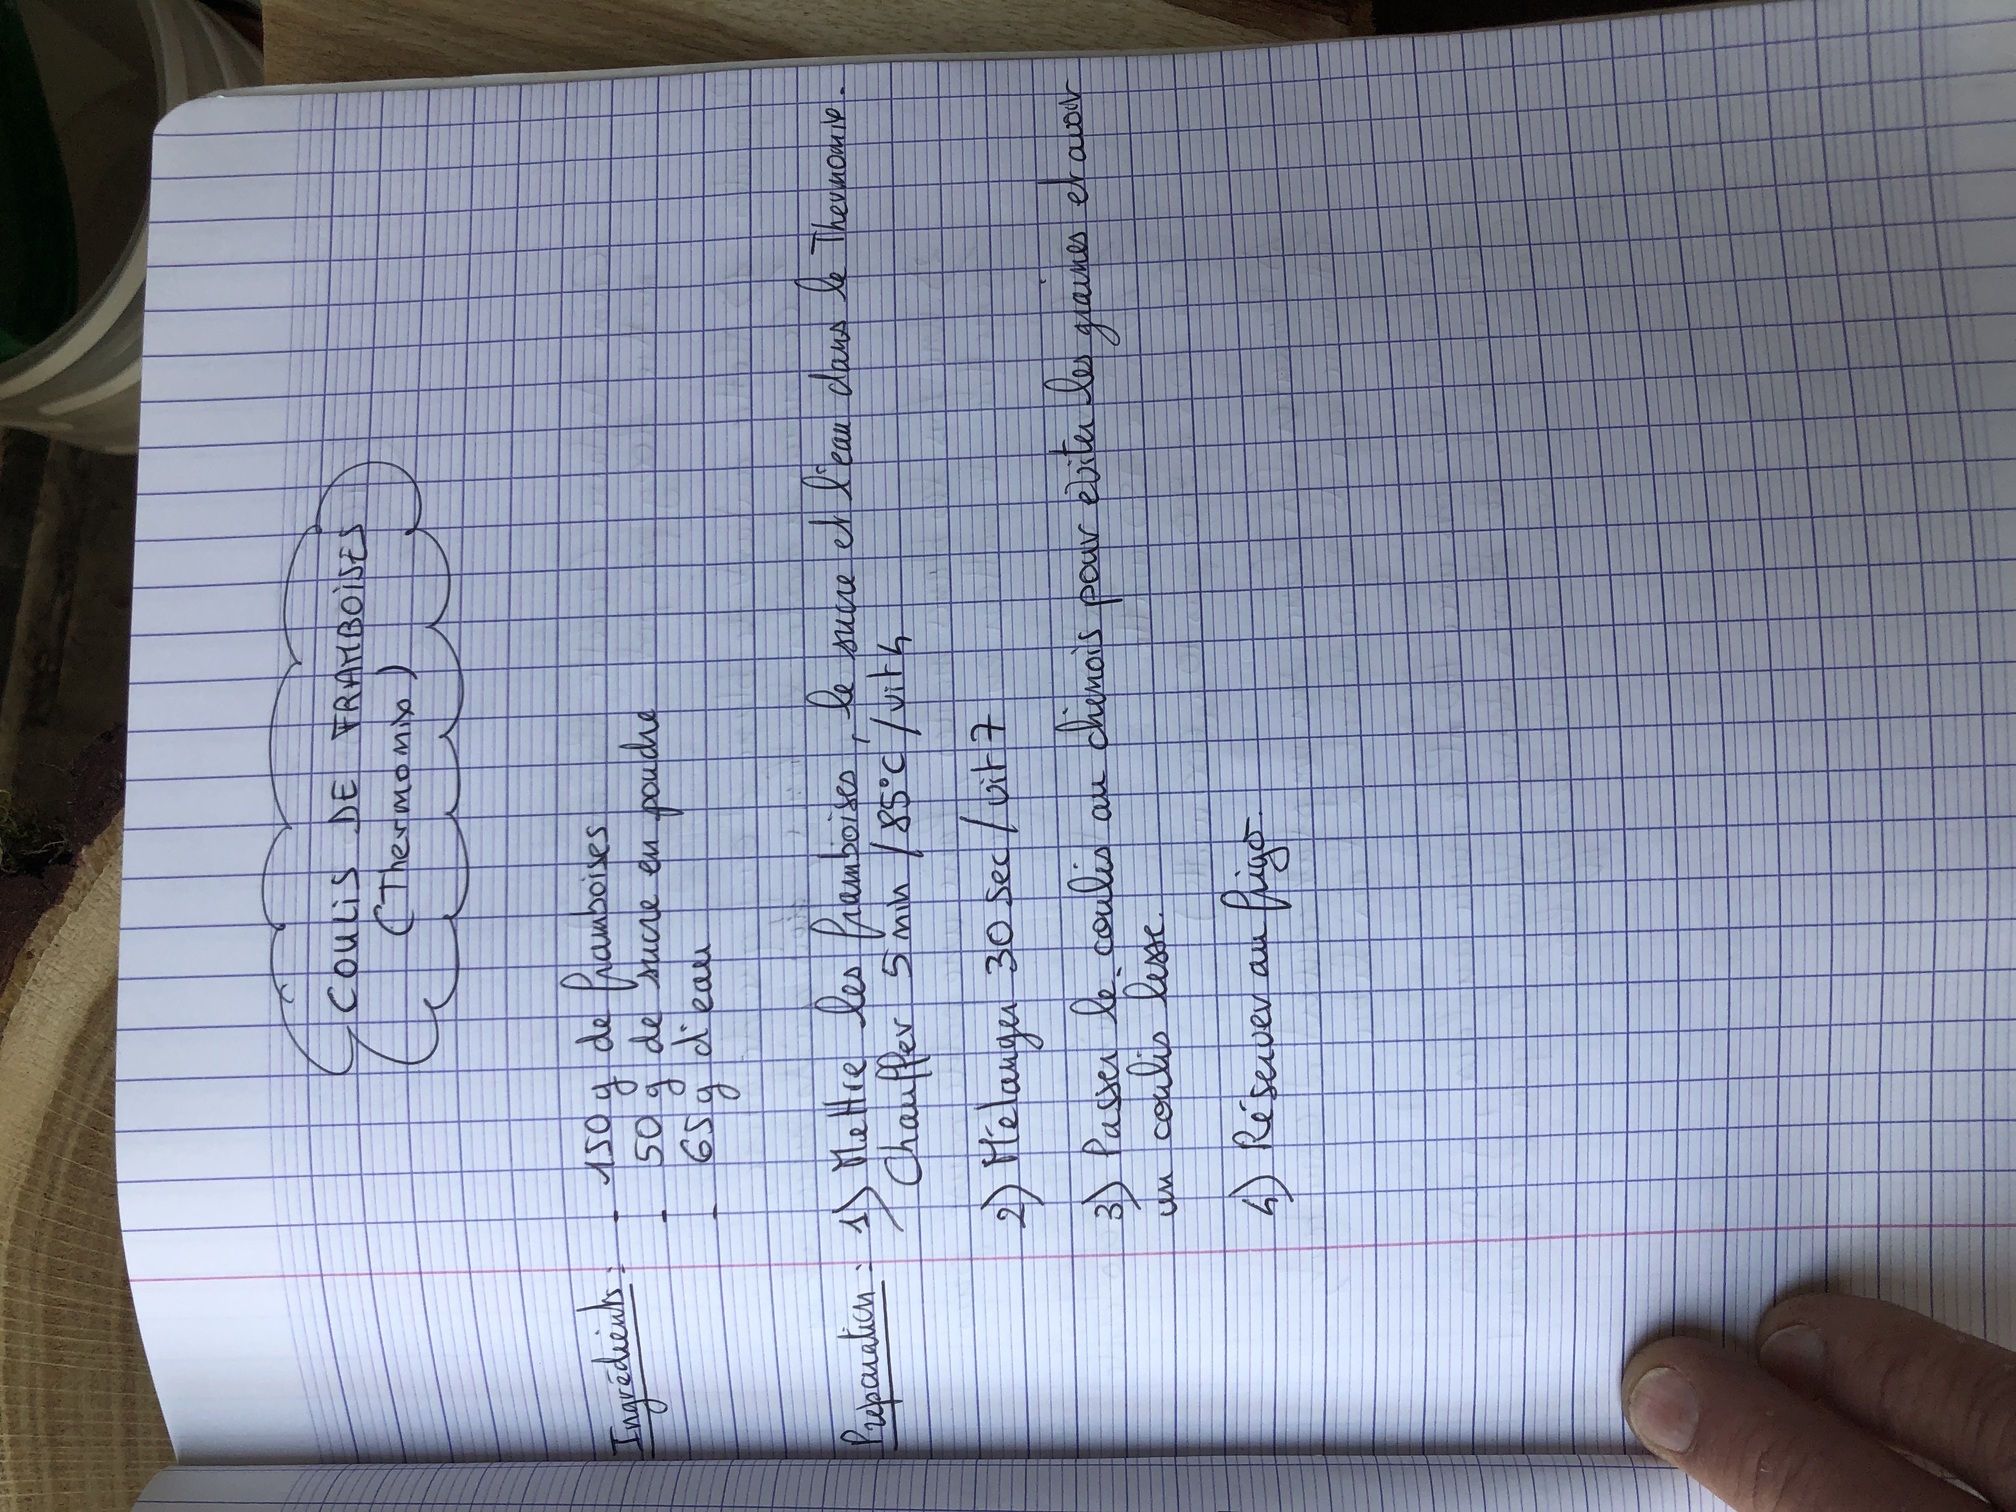 COULIS DE FRAMBOISES
(Thermomix)
Ingrédients : - 150 g de framboises
- 50 g de sucre en poudre
- 65 g d'eau
Préparation : 1) Mettre les framboises, le sucre et l'eau dans le Thermomix.
Chauffer 5 min / 85°C / vit 4
2) Mélanger 30 sec / vit 7
3) Passer le coulis au chinois pour éviter les graines et avoir
un coulis lisse.
4) Réserver au frigo.